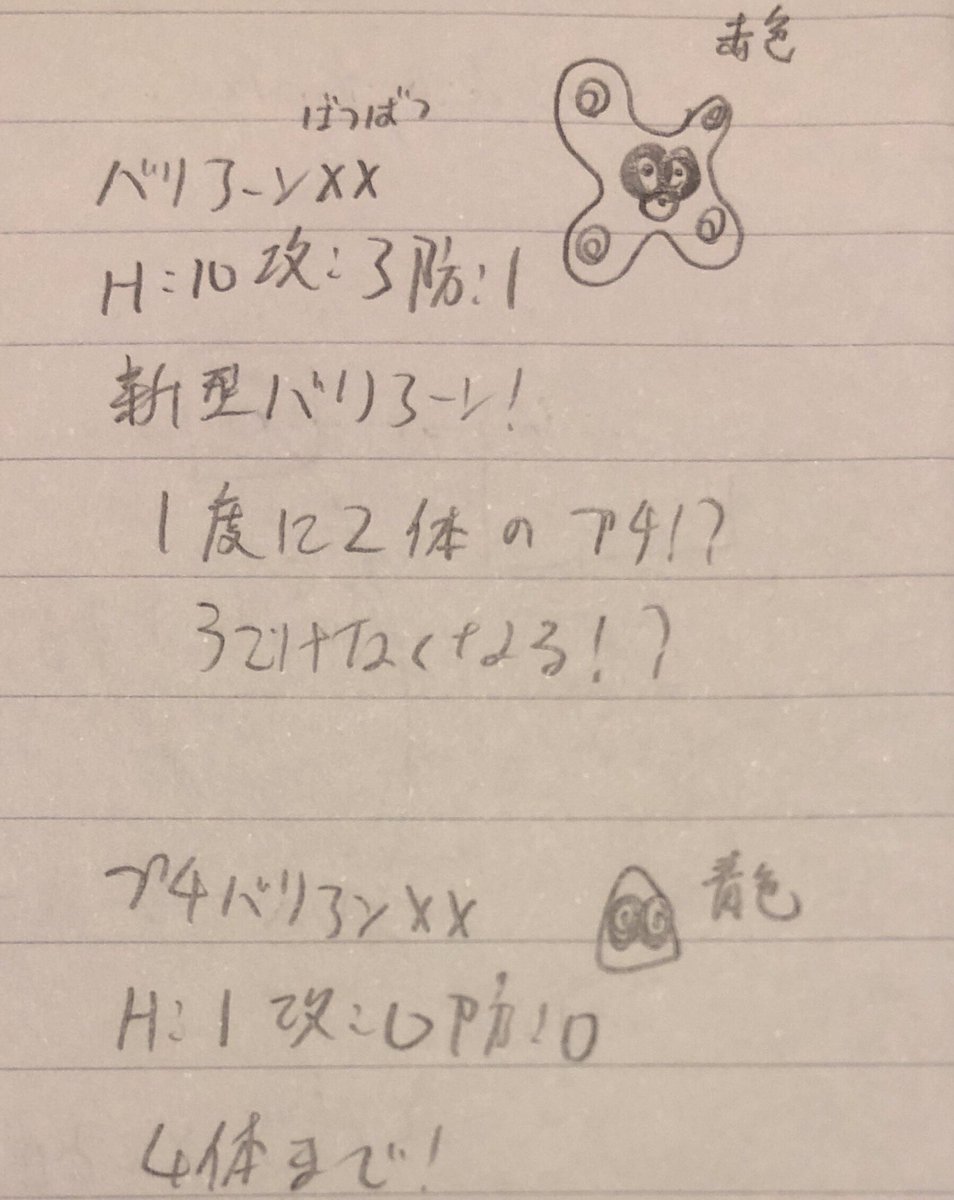 赤色
ばつばつ
バリアーンXX
H:10 攻:3 防:1
新型バリアーン!
1度に2体のプチ!?
うごけなくなる!?
プチバリアンXX
青色
H:1 攻:0 防:0
4体まで!